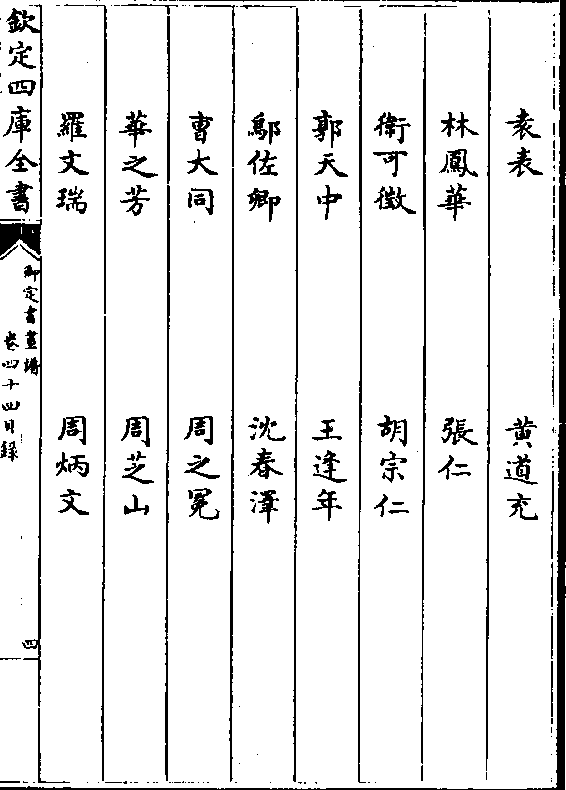 袁表 黃道充
林鳳華 張仁
衛可徵 胡宗仁
郭天中 王逢年
鄔佐卿 沈春澤
曹大同 周之冕
華之芳 周芝山
羅文瑞 周炳文
欽定四庫全書
御定書畫譜
卷四十四目錄
四